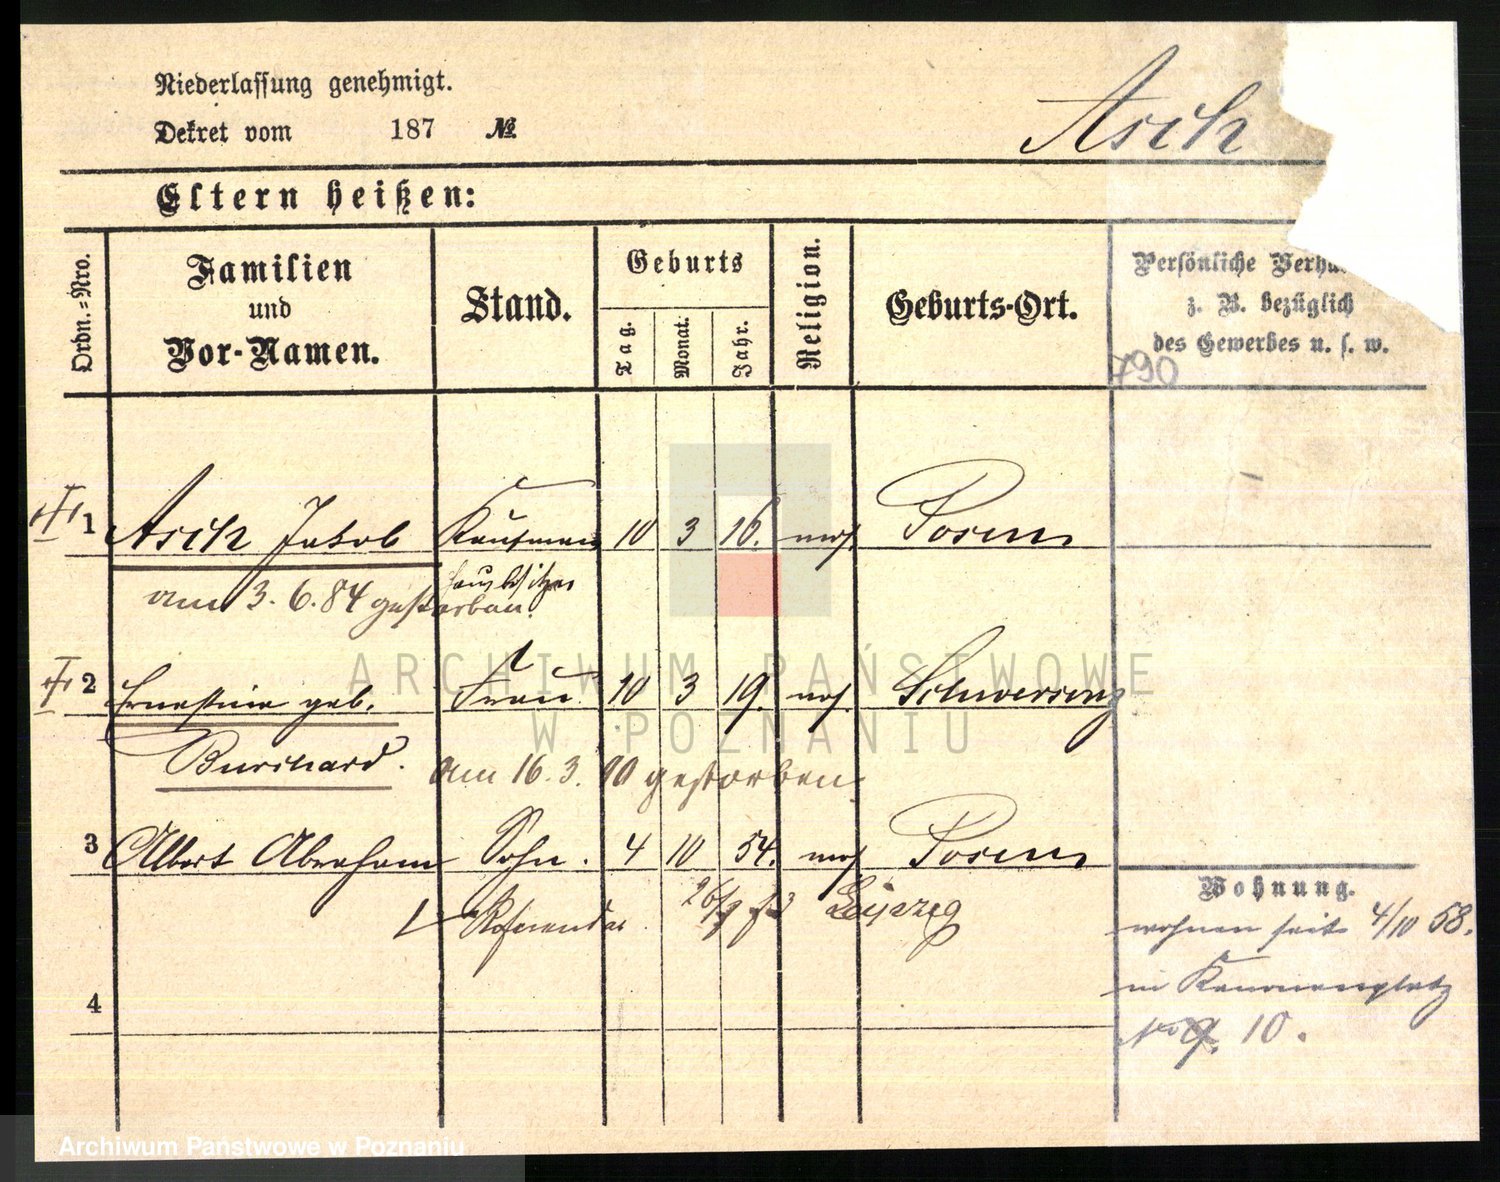 Niederlassung genehmigt.
Asch
Dekret vom 187 №
Eltern heißen:
Ordn.=Nro.
Familien
und
Vor-Namen.
Stand.
Geburts
Tag.
Monat.
Jahr.
Religion.
Geburts-Ort.
Persönliche Verhä
z. B. bezüglich
des Gewerbes u. s. w.
790
1 Asch Jakob Kaufmann 10 3 16. mos. Posen
Hausbesitzer
am 3.6.84 gestorben.
2 Ernestine geb. Frau 10 3 19. mos. Schwersenz
Burchard. am 16.3.90 gestorben.
3 Albert Abraham Sohn. 4 10 54. mos. Posen
Wohnung.
Referendar. 26/9 Leipzig
wohnen seit 4/10 58.
in Kanonenplatz
No 9. 10.
4
ARCHIWUM PAŃSTWOWE
W POZNANIU
Archiwum Państwowe w Poznaniu